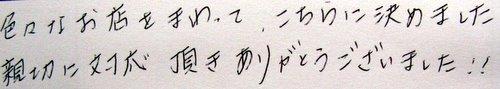 色々なお店をまわって、こちらに決めました
親切に対応 頂きありがとうございました!!